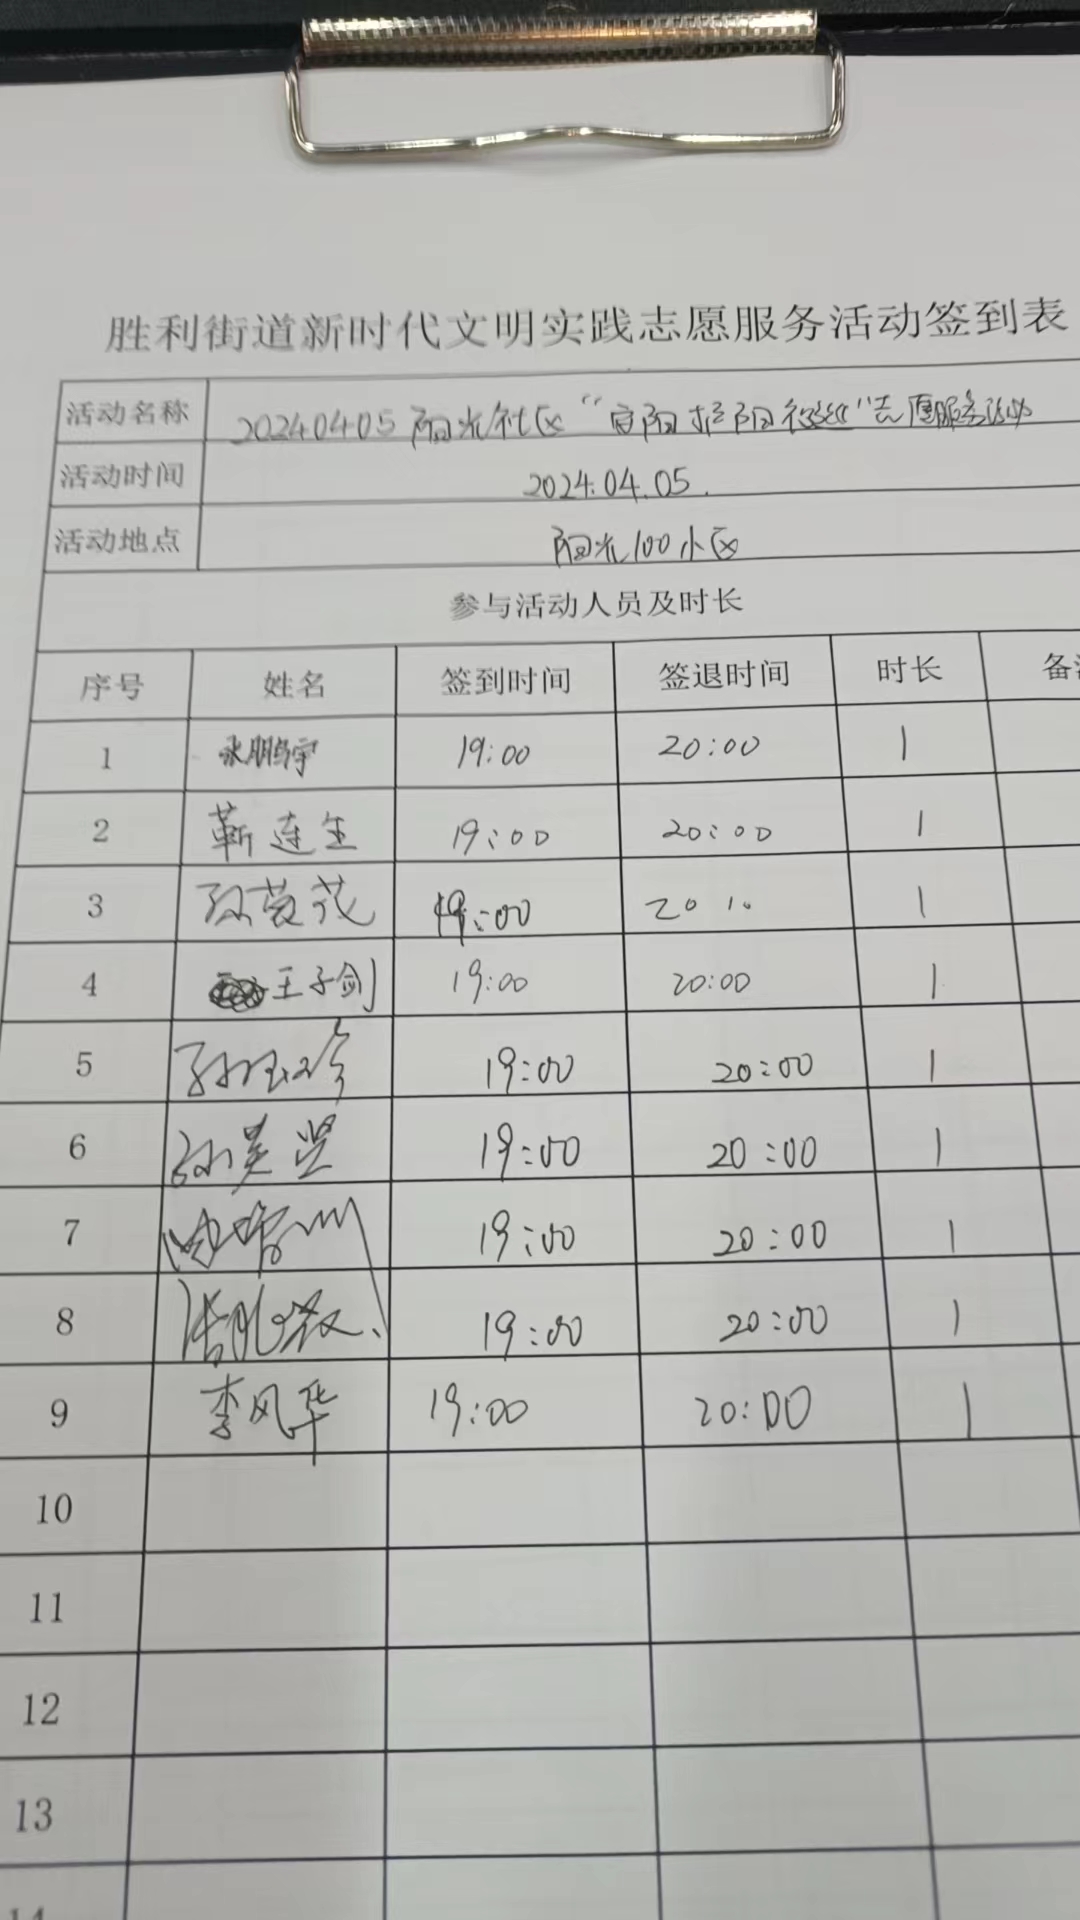 胜利街道新时代文明实践志愿服务活动签到表
活动名称 20240405 阳光社区“ 阳 阳 巡”志愿服务活动
活动时间 2024.04.05.
活动地点 阳光100小区
参与活动人员及时长
序号 姓名 签到时间 签退时间 时长 备
1 鹏宇 19:00 20:00 1
2 靳连生 19:00 20:00 1
3 花 19:00 20 1
4 王子剑 19:00 20:00 1
5 19:00 20:00 1
6 孙 19:00 20:00 1
7 19:00 20:00 1
8 19:00 20:00 1
9 李风华 19:00 20:00 1
10
11
12
13
14